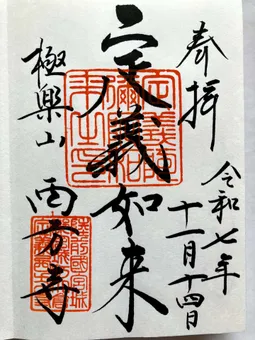 奉拝
令和七年
十一月十四日
定義如来
極楽山
西方寺